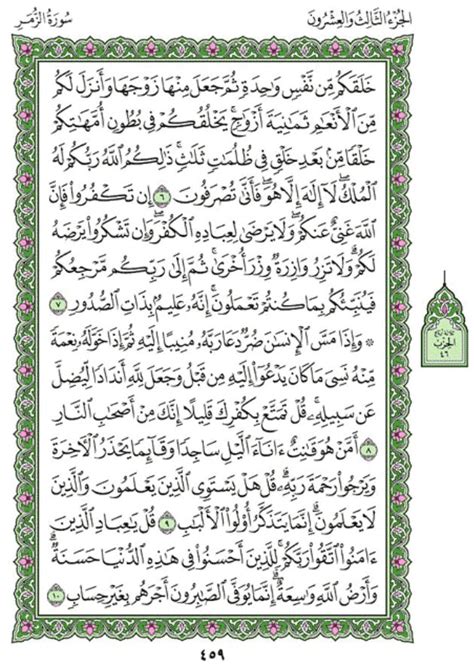 الجُزْءُ الثَّالِثُ وَالعِشْرُونَ
سُورَةُ الزُّمَرِ
خَلَقَكُم مِّن نَّفْسٍ وَٰحِدَةٍ ثُمَّ جَعَلَ مِنْهَا زَوْجَهَا وَأَنزَلَ لَكُم
مِّنَ ٱلْأَنْعَٰمِ ثَمَٰنِيَةَ أَزْوَٰجٍ ۚ يَخْلُقُكُمْ فِى بُطُونِ أُمَّهَٰتِكُمْ
خَلْقًا مِّنۢ بَعْدِ خَلْقٍ فِى ظُلُمَٰتٍ ثَلَٰثٍ ۚ ذَٰلِكُمُ ٱللَّهُ رَبُّكُمْ لَهُ
ٱلْمُلْكُ ۖ لَآ إِلَٰهَ إِلَّا هُوَ ۖ فَأَنَّىٰ تُصْرَفُونَ ٦ إِن تَكْفُرُوا۟ فَإِنَّ
ٱللَّهَ غَنِىٌّ عَنكُمْ ۖ وَلَا يَرْضَىٰ لِعِبَادِهِ ٱلْكُفْرَ ۖ وَإِن تَشْكُرُوا۟ يَرْضَهُ
لَكُمْ ۗ وَلَا تَزِرُ وَازِرَةٌ وِزْرَ أُخْرَىٰ ۗ ثُمَّ إِلَىٰ رَبِّكُم مَّرْجِعُكُمْ
فَيُنَبِّئُكُم بِمَا كُنتُمْ تَعْمَلُونَ ۚ إِنَّهُۥ عَلِيمٌۢ بِذَاتِ ٱلصُّدُورِ ٧
۞ وَإِذَا مَسَّ ٱلْإِنسَٰنَ ضُرٌّ دَعَا رَبَّهُۥ مُنِيبًا إِلَيْهِ ثُمَّ إِذَا خَوَّلَهُۥ نِعْمَةً
مِّنْهُ نَسِىَ مَا كَانَ يَدْعُوٓا۟ إِلَيْهِ مِن قَبْلُ وَجَعَلَ لِلَّهِ أَندَادًا لِّيُضِلَّ
عَن سَبِيلِهِۦ ۚ قُلْ تَمَتَّعْ بِكُفْرِكَ قَلِيلًا ۖ إِنَّكَ مِنْ أَصْحَٰبِ ٱلنَّارِ
٨ أَمَّنْ هُوَ قَٰنِتٌ ءَانَآءَ ٱلَّيْلِ سَاجِدًا وَقَآئِمًا يَحْذَرُ ٱلْءَاخِرَةَ
وَيَرْجُوا۟ رَحْمَةَ رَبِّهِۦ ۗ قُلْ هَلْ يَسْتَوِى ٱلَّذِينَ يَعْلَمُونَ وَٱلَّذِينَ
لَا يَعْلَمُونَ ۗ إِنَّمَا يَتَذَكَّرُ أُو۟لُوا۟ ٱلْأَلْبَٰبِ ٩ قُلْ يَٰعِبَادِ ٱلَّذِينَ
ءَامَنُوا۟ ٱتَّقُوا۟ رَبَّكُمْ ۚ لِلَّذِينَ أَحْسَنُوا۟ فِى هَٰذِهِ ٱلدُّنْيَا حَسَنَةٌ ۗ
وَأَرْضُ ٱللَّهِ وَٰسِعَةٌ ۗ إِنَّمَا يُوَفَّى ٱلصَّٰبِرُونَ أَجْرَهُم بِغَيْرِ حِسَابٍ ١٠
الحِزْب
٤٦
٤٥٩